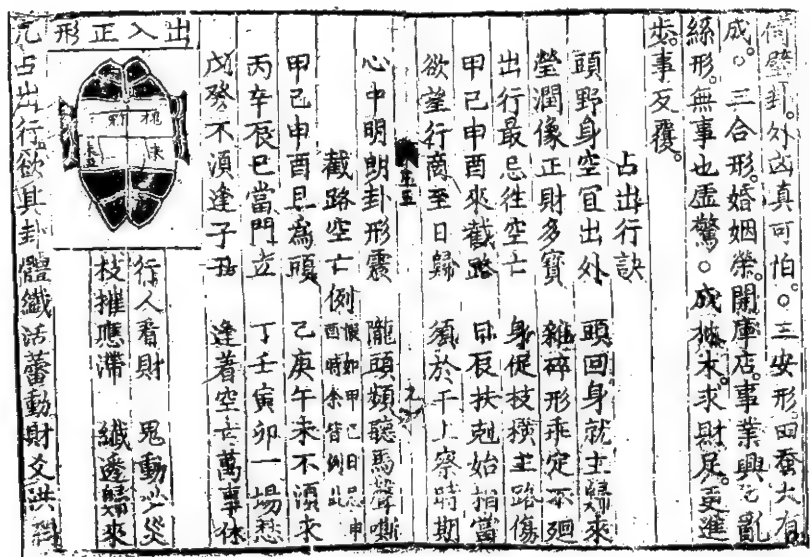 倚壁封。外凶真可怕。○三安形。田蚕大有
成。○三合形。婚姻榮。開庫店。事業興。○亂
絲形。無事也虛驚。○成梯木求財足。更進
步。事反覆。
占出行訣
頭野身空宜出外 頭回身就主歸來
瑩潤像正財多寶 雜碎形乖定不廻
出行最忌往空亡 身促枝橫主路傷
甲己申酉來截路 日辰扶剋始相當
欲望行商至日歸 須於干上察時期
心中明朗卦形震 隴頭頻聽馬聲嘶
截路空亡例 假如甲己日忌申
酉時余皆例此
甲己申酉足為頭 乙庚午未不須求
丙辛辰巳當門立 丁壬寅卯一場愁
戊癸不須逢子丑 逢着空亡萬事休
出入正形
行人看財 鬼動必災
枝摧應滯 纖透歸來
凡占出行欲其卦體纖活蓄動財爻洪